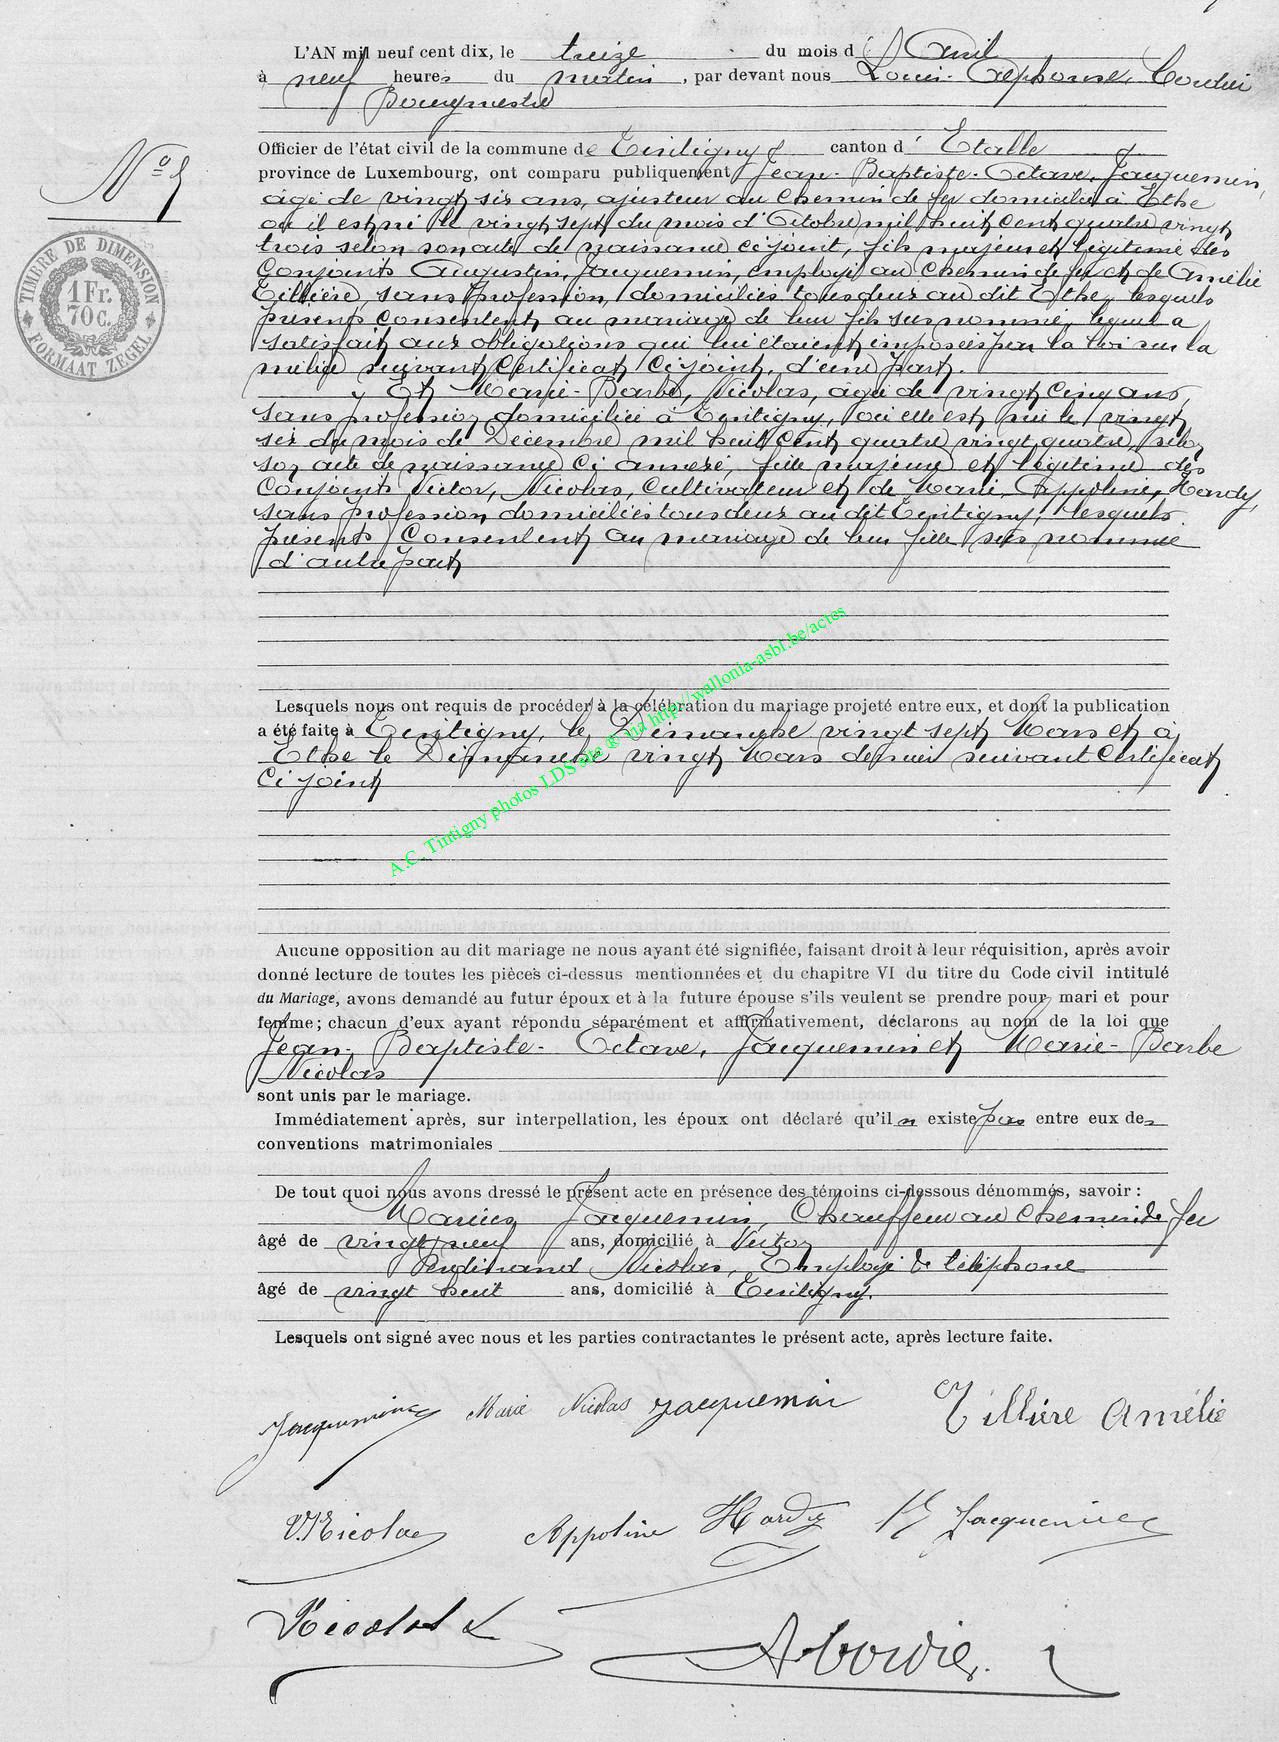 L'AN mil neuf cent dix, le treize du mois d'Avril
à neuf heures du matin, par devant nous Louis-Alphonse,
Bourgmestre
Officier de l'état civil de la commune de Tintigny canton d'Etalle
province de Luxembourg, ont comparu publiquement Jean-Baptiste-Octave, Jacquemin,
âgé de vingt six ans, ajusteur au chemin de fer domicilié à Ethe
où il est né le vingt sept du mois d'Octobre mil huit cent quatre vingt
trois selon son acte de naissance ci joint, fils majeur et légitime des
Conjoints Augustin, Jacquemin, employé au chemin de fer et de Amélie
Tillière, sans profession, domiciliés tous deux au dit Ethe, lesquels
présents consentent au mariage de leur fils sus nommé, lequel a
satisfait aux obligations qui lui étaient imposées par la loi sur la
milice suivant certificat ci joint, d'une part.
Et Marie-Barbe, Nicolas, âgée de vingt cinq ans,
sans profession domiciliée à Tintigny, où elle est née le vingt
six du mois de Décembre mil huit cent quatre vingt quatre, selon
son acte de naissance ci annexé, fille majeure et légitime des
Conjoints Victor, Nicolas, cultivateur et de Marie, Appoline, Hardy,
sans profession domiciliés tous deux au dit Tintigny, lesquels
présents consentent au mariage de leur fille sus nommée
d'autre part
N° 5
TIMBRE DE DIMENSION
1 Fr.
70 c.
FORMAAT ZEGEL
Lesquels nous ont requis de procéder à la célébration du mariage projeté entre eux, et dont la publication
a été faite à Tintigny, le Dimanche vingt sept Mars et à
Ethe le Dimanche vingt Mars dernier suivant certificat
ci joint
A.C. Tintigny photos LDS site ® via http://wallonia-asbl.be/actes
Aucune opposition au dit mariage ne nous ayant été signifiée, faisant droit à leur réquisition, après avoir
donné lecture de toutes les pièces ci-dessus mentionnées et du chapitre VI du titre du Code civil intitulé
du Mariage, avons demandé au futur époux et à la future épouse s'ils veulent se prendre pour mari et pour
femme ; chacun d'eux ayant répondu séparément et affirmativement, déclarons au nom de la loi que
Jean-Baptiste-Octave, Jacquemin et Marie-Barbe
Nicolas
sont unis par le mariage.
Immédiatement après, sur interpellation, les époux ont déclaré qu'il n existe pas entre eux de
conventions matrimoniales
De tout quoi nous avons dressé le présent acte en présence des témoins ci-dessous dénommés, savoir :
Marius Jacquemin, Chauffeur au Chemin de fer
âgé de vingt neuf ans, domicilié à Virton
Ferdinand Nicolas, Employé de téléphone
âgé de vingt huit ans, domicilié à Tintigny.
Lesquels ont signé avec nous et les parties contractantes le présent acte, après lecture faite.
Jacquemin Marie Nicolas Jacquemin Tillière Amélie
V. Nicolas Appoline Hardy Jacquemin
Nicolas